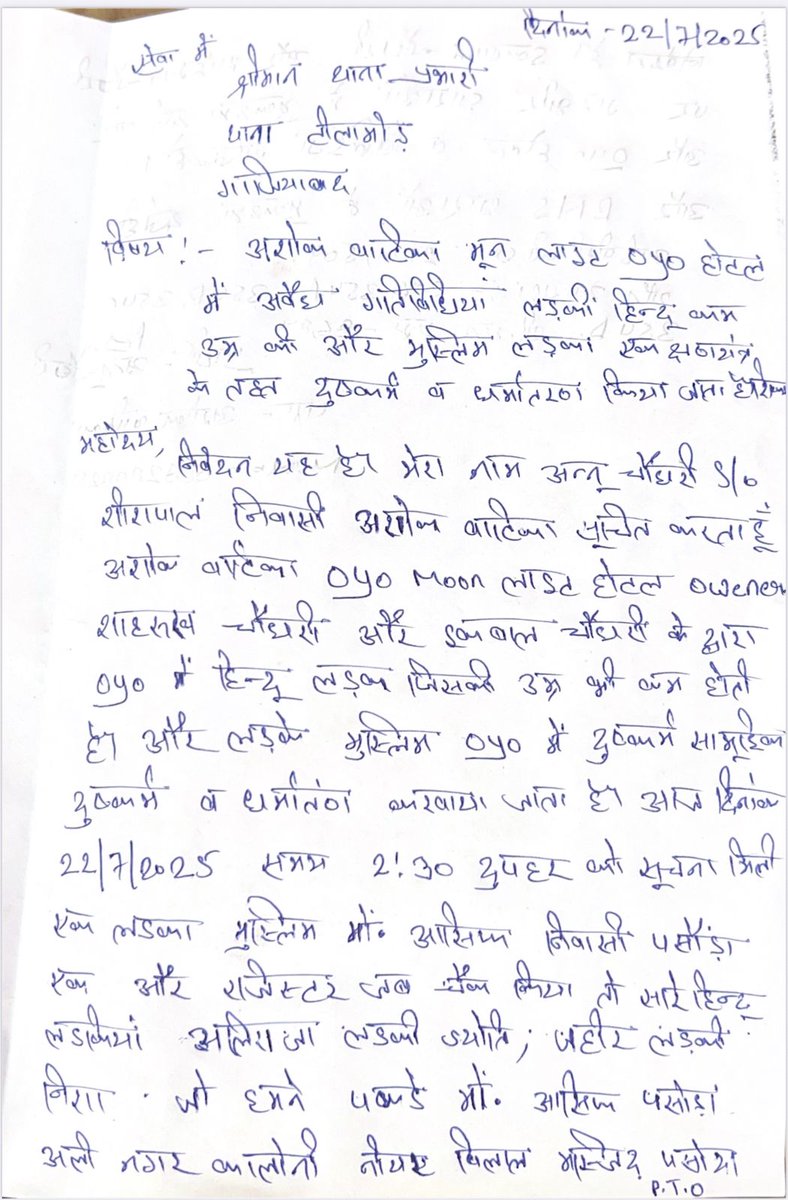 दिनांक - 22/7/2025
सेवा में
श्रीमान थाना प्रभारी
थाना टीलामोड़
गाजियाबाद
विषय :- अशोक वाटिका मून लाइट oyo होटल
में अवैध गतिविधियां लड़की हिन्दू कम
उम्र की और मुस्लिम लड़का एक
के तहत दुष्कर्म व धर्मातरण किया जाता है
महोदय,
निवेदन यह है। मेरा नाम अन्नू चौधरी S/o
निवासी अशोक वाटिका सूचित करता हूँ
अशोक वाटिका oyo Moon लाइट होटल owener
शाहरूख चौधरी और इकबाल चौधरी के द्वारा
oyo में हिन्दू लड़क जिसकी उम्र भी कम होती
है। और लड़के मुस्लिम oyo में दुष्कर्म सामूहिक
दुष्कर्म व करवाया जाता है। आज दिनांक
22/7/2025 समय 2:30 दुपहर को सूचना मिली
एक लडका मुस्लिम मों. आसिफ निवासी पसौंड़ा
एक और राजिस्टर जब चैक किया तो सारे हिन्दू
लडकियां लडकी ज्योति, जहीर लड़की
निशा . जो हमने पकडे मों. आसिफ पसोड़ां
अली नगर कालोनी नीयर बिलाल मस्जिद
P.T.O